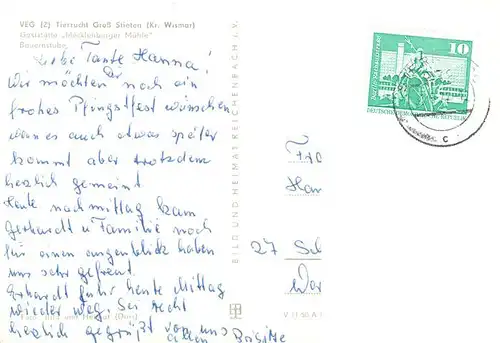 VEG (Z) Tierzucht Groß Stieten (Kr. Wismar)
Gaststätte „Mecklenburger Mühle"
Bauernstube
Liebe Tante Hanna!
Wir möchten Dir noch ein
frohes Pfingstfest wünschen
wenn es auch etwas später
kommt aber trotzdem
herzlich gemeint
Heute nachmittag kam
Gerhardt u Familie noch
für einen augenblick haben
uns sehr gefreut.
Erhardt fuhr heute Mittag
wieder weg. Sei recht
herzlich gegrüßt von uns
allen Brigitte
BILD UND HEIMAT REICHENBACH i. V.
10
DEUTSCHE DEMOKRATISCHE REPUBLIK
c
Fra
Han
27 Sch
War